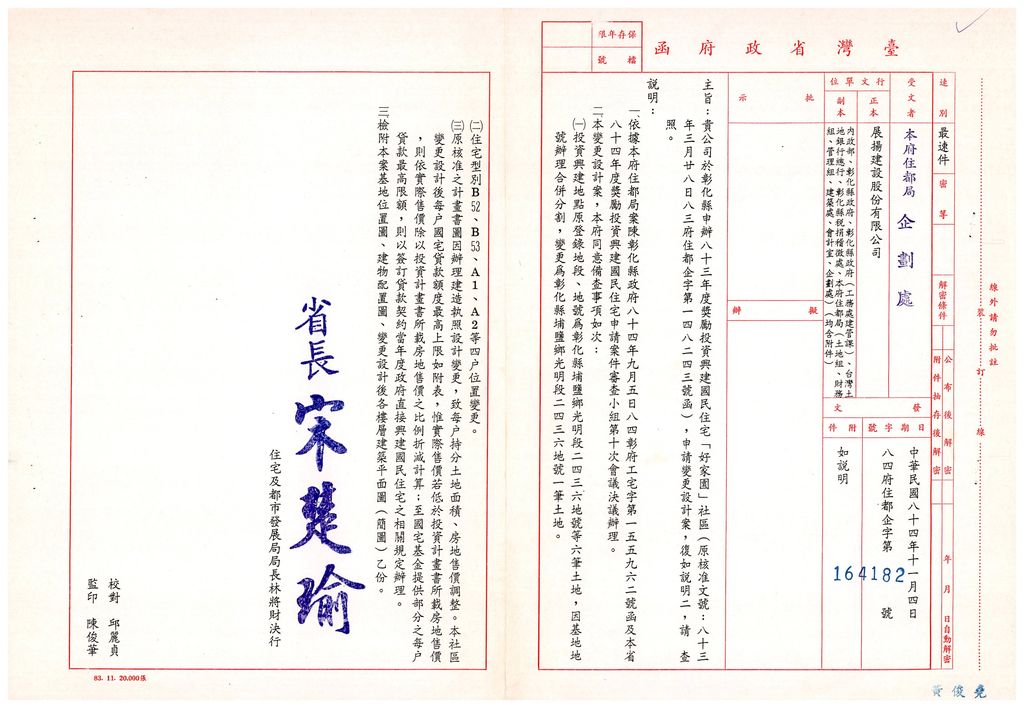 臺灣省政府函
保存年限
檔號
速別
最速件
密等
解密條件
公布後解密
附件抽存後解密
年月日自動解密
受文者
本府住都局企劃處
行文單位
正本
展揚建設股份有限公司
副本
內政部、彰化縣政府、彰化縣政府（工務處建管課）、台灣土
地銀行總行、彰化縣稅捐稽徵處、本府住都局（土地組、財務
組、管理組、建築處、會計室、企劃處）（均含附件）
發文
日期字號附件
中華民國八十四年十一月四日
八四府住都企字第164182號
如說明
批示
擬辦
主旨：貴公司於彰化縣申辦八十三年度獎勵投資興建國民住宅「好家園」社區（原核准文號：八十三
年三月廿八日八三府住都企字第一四八二四三號函），申請變更設計案，復如說明二，請　查
照。
說明：
一、依據本府住都局案陳彰化縣政府八十四年九月五日八四彰府工宅字第一五五九六二號函及本省
八十四年度獎勵投資興建國民住宅申請案件審查小組第十次會議決議辦理。
二、本變更設計案，本府同意備查事項如次：
㈠投資興建地點原登錄地段、地號為彰化縣埔鹽鄉光明段二四三六地號等六筆土地，因基地地
號辦理合併分割，變更為彰化縣埔鹽鄉光明段二四三六地號一筆土地。
㈡住宅型別B52、B53、A1、A2等四户位置變更。
㈢原核准之計畫書圖因辦理建造執照設計變更，致每户持分土地面積、房地售價調整。本社區
變更設計後每户國宅貸款額度最高上限如附表，惟實際售價若低於投資計畫書所載房地售價
，則依實際售價除以投資計畫書所載房地售價之比例折減計算；至國宅基金提供部分之每户
貸款最高限額，則以簽訂貸款契約當年度政府直接興建國民住宅之相關規定辦理。
三、檢附本案基地位置圖、建物配置圖、變更設計後各樓層建築平面圖（簡圖）乙份。
省長宋楚瑜
住宅及都市發展局局長林將財決行
校對　邱麗貞
監印　陳俊筆
線外請勿批註
裝訂線
83. 11. 20,000張
黃俊堯